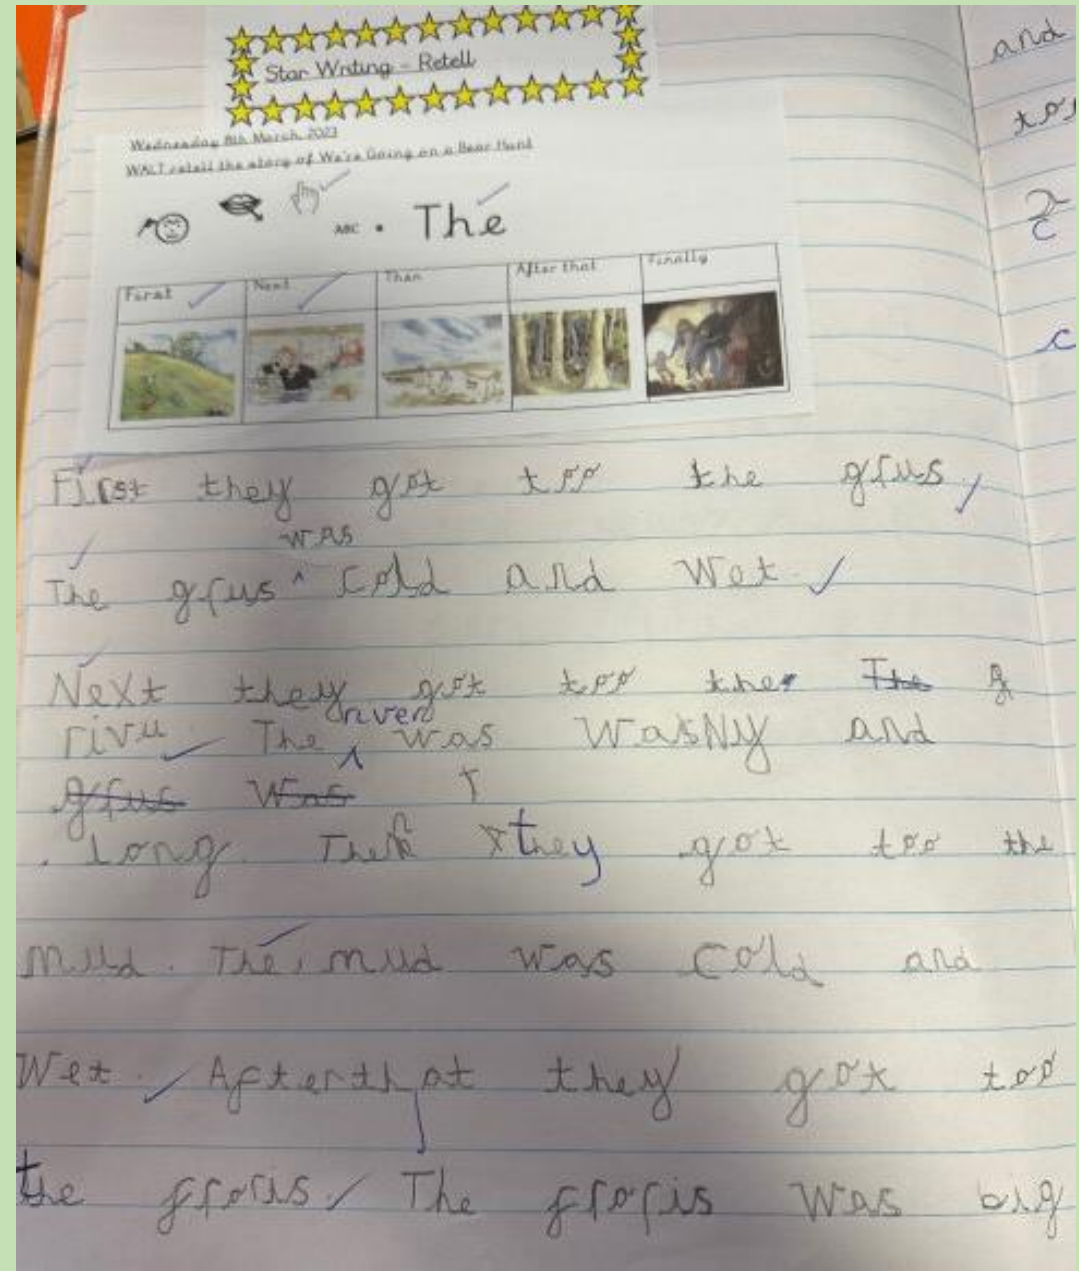 Star Writing - Retell
Wednesday 8th March, 2023
WALT retell the story of We're Going on a Bear Hunt
ABC . The
First Next Then After that Finally
First they got too the grus
was
The grus ^ cold and Wet.
Next they got too the The
river
rivu. The ^ was WasNy and
grus Was
Long. Then they got too the
mud. The mud was cold and
Wet. Afterthat they got too
the froris. The froris was big
and